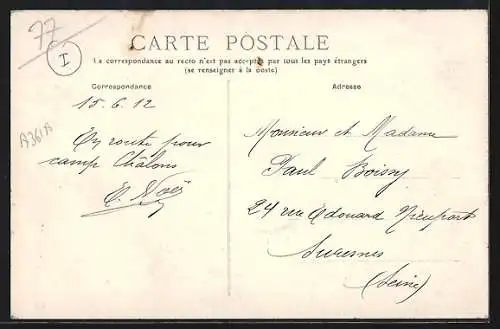 77
I
CARTE POSTALE
La correspondance au recto n'est pas acceptée par tous les pays étrangers
(se renseigner à la poste)
Correspondance
Adresse
15.6.12
A361B
En route pour
camp Châlons
E. Noës
Monsieur et Madame
Paul Boissy
24 rue Edouard Nieuport
Suresnes
(Seine)